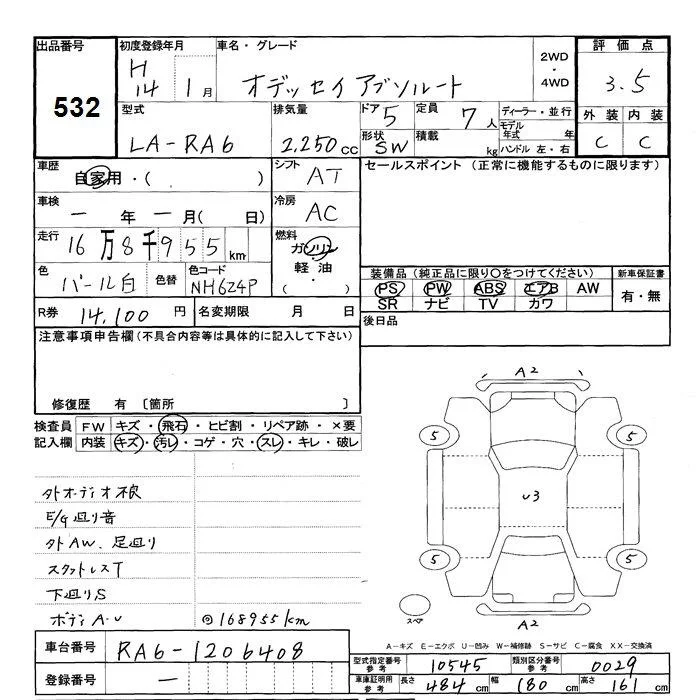 出品番号 初度登録年月 車名・グレード 2WD・4WD 評価点
532 H14 1月 オデッセイアブソルート 3.5
型式 排気量 ドア 5 定員 7人 ディーラー・並行 外装 内装
LA-RA6 2,250cc 形状 SW 積載 kg モデル年式 年 C C
ハンドル 左・右
車歴 自家用・( ) シフト AT セールスポイント (正常に機能するものに限ります)
車検 一年 一月( 日) 冷房 AC
走行 16万8千955km 燃料 ガソリン・軽油・( )
色 パール白 色替 色コード NH624P
装備品 (純正品に限り○をつけてください) 新車保証書
PS PW ABS エアB AW 有・無
SR ナビ TV カワ
R券 14,100円 名変期限 月 日 後日品
注意事項申告欄 (不具合内容等は具体的に記入して下さい)
修復歴 有 [箇所 ]
検査員記入欄 FW キズ・飛石・ヒビ割・リペア跡・×要
内装 キズ・汚レ・コゲ・穴・スレ・キレ・破レ
外オーディオ不良
E/G廻り音
外AW、足廻り
スタットレスT
下廻りS
ボディA・U ◎168955km
A2
5 5
U3
5 5
スペア
A2
A-キズ E-エクボ U-凹み W-補修跡 S-サビ C-腐食 XX-交換済
車台番号 RA6-1206408
登録番号 一
型式指定番号 参考 10545 類別区分番号 参考 0029
車庫証明用 参考 長さ 484cm 幅 180cm 高さ 161cm